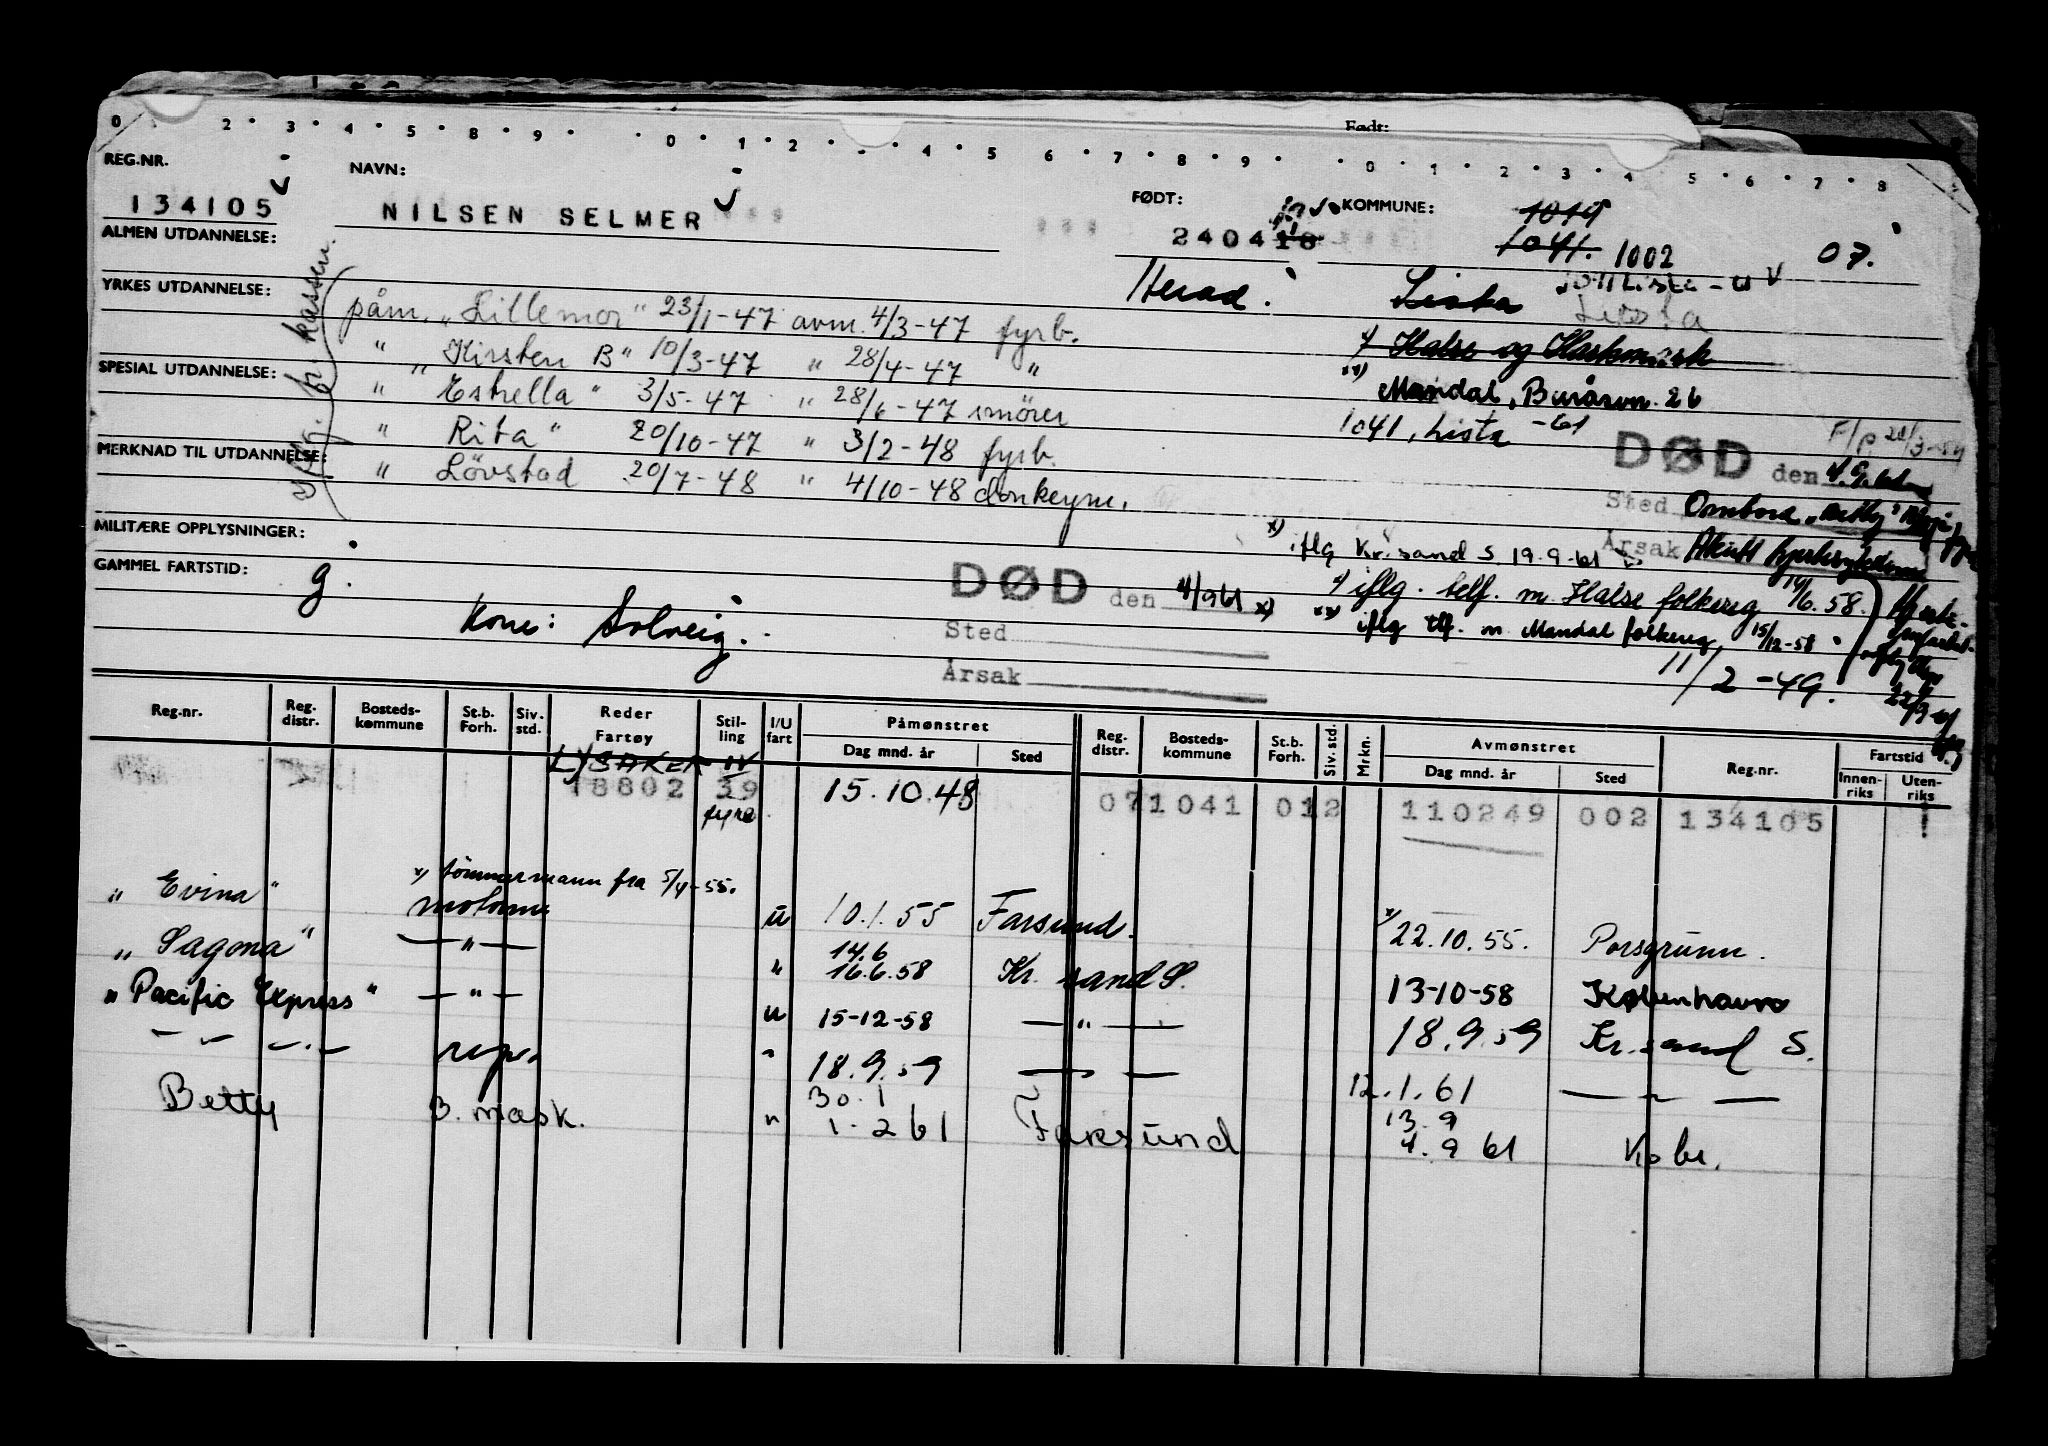 Født:
0 2 3 4 5 8 9 0 1 2 4 5 6 7 8 9 0 1 2 3 4 5 6 7 8
REG.NR.
134105
NAVN:
NILSEN SELMER
FØDT:
240418
KOMMUNE:
1019
1041. 1002 07.
ALMEN UTDANNELSE:
Herad. Lista
Lista
YRKES UTDANNELSE:
påm. „Lillemor" 23/1-47 avm. 4/3-47 fyrb.
x) Halse og Harkmark
" „Kirsten B" 10/3-47 " 28/4-47 "
xx) Mandal, Buråsvn. 26
SPESIAL UTDANNELSE:
" Estrella" 3/5-47 " 28/6-47 smører
1041, Lista -61
" Rita" 20/10-47 " 3/2-48 fyrb.
DØD den 4.9.
MERKNAD TIL UTDANNELSE:
" Lövstad 20/7-48 " 4/10-48 donkeym.
Sted Ombord „Betty"
MILITÆRE OPPLYSNINGER:
x) iflg Kr.sand S. 19.9-61
Årsak Akutt
GAMMEL FARTSTID:
g.
DØD den 4/9 61 x)
x) iflg. telf. m. Halse folkereg 14/6.58.
Kone: Solveig.
Sted
xx) iflg tlf. m. Mandal folkereg. 15/12-58
Årsak
11/2-49.
Reg.nr. Reg. distr. Bosteds-kommune St.b. Forh. Siv. std. Reder Fartøy Stil-ling I/U fart Påmønstret Dag mnd. år Sted Reg. distr. Bosteds-kommune St.b. Forh. Siv. std. Mrkn. Avmønstret Dag mnd. år Sted Reg.nr. Fartstid Innen-riks Uten-riks
LYSAKER IV
18802 39 15.10.48 071041 012 110249 002 134105
fyrb
x) tömmermann fra 5/4-55.
„Evina" motorm u 10.1.55 Farsund. x) 22.10.55. Porsgrunn.
14.6
„Sagona" — " — " 16.6.58 Kr.sand S. 13-10-58 København
„Pacific Express" — " — u 15-12-58 — " — 18.9.59 Kr.sand S.
— " — repr. " 18.9.59 — " — 12.1.61 — " —
30.1
13.9
Betty 3. mask. " 1-2 61 Farsund 4.9 61 Kobe.